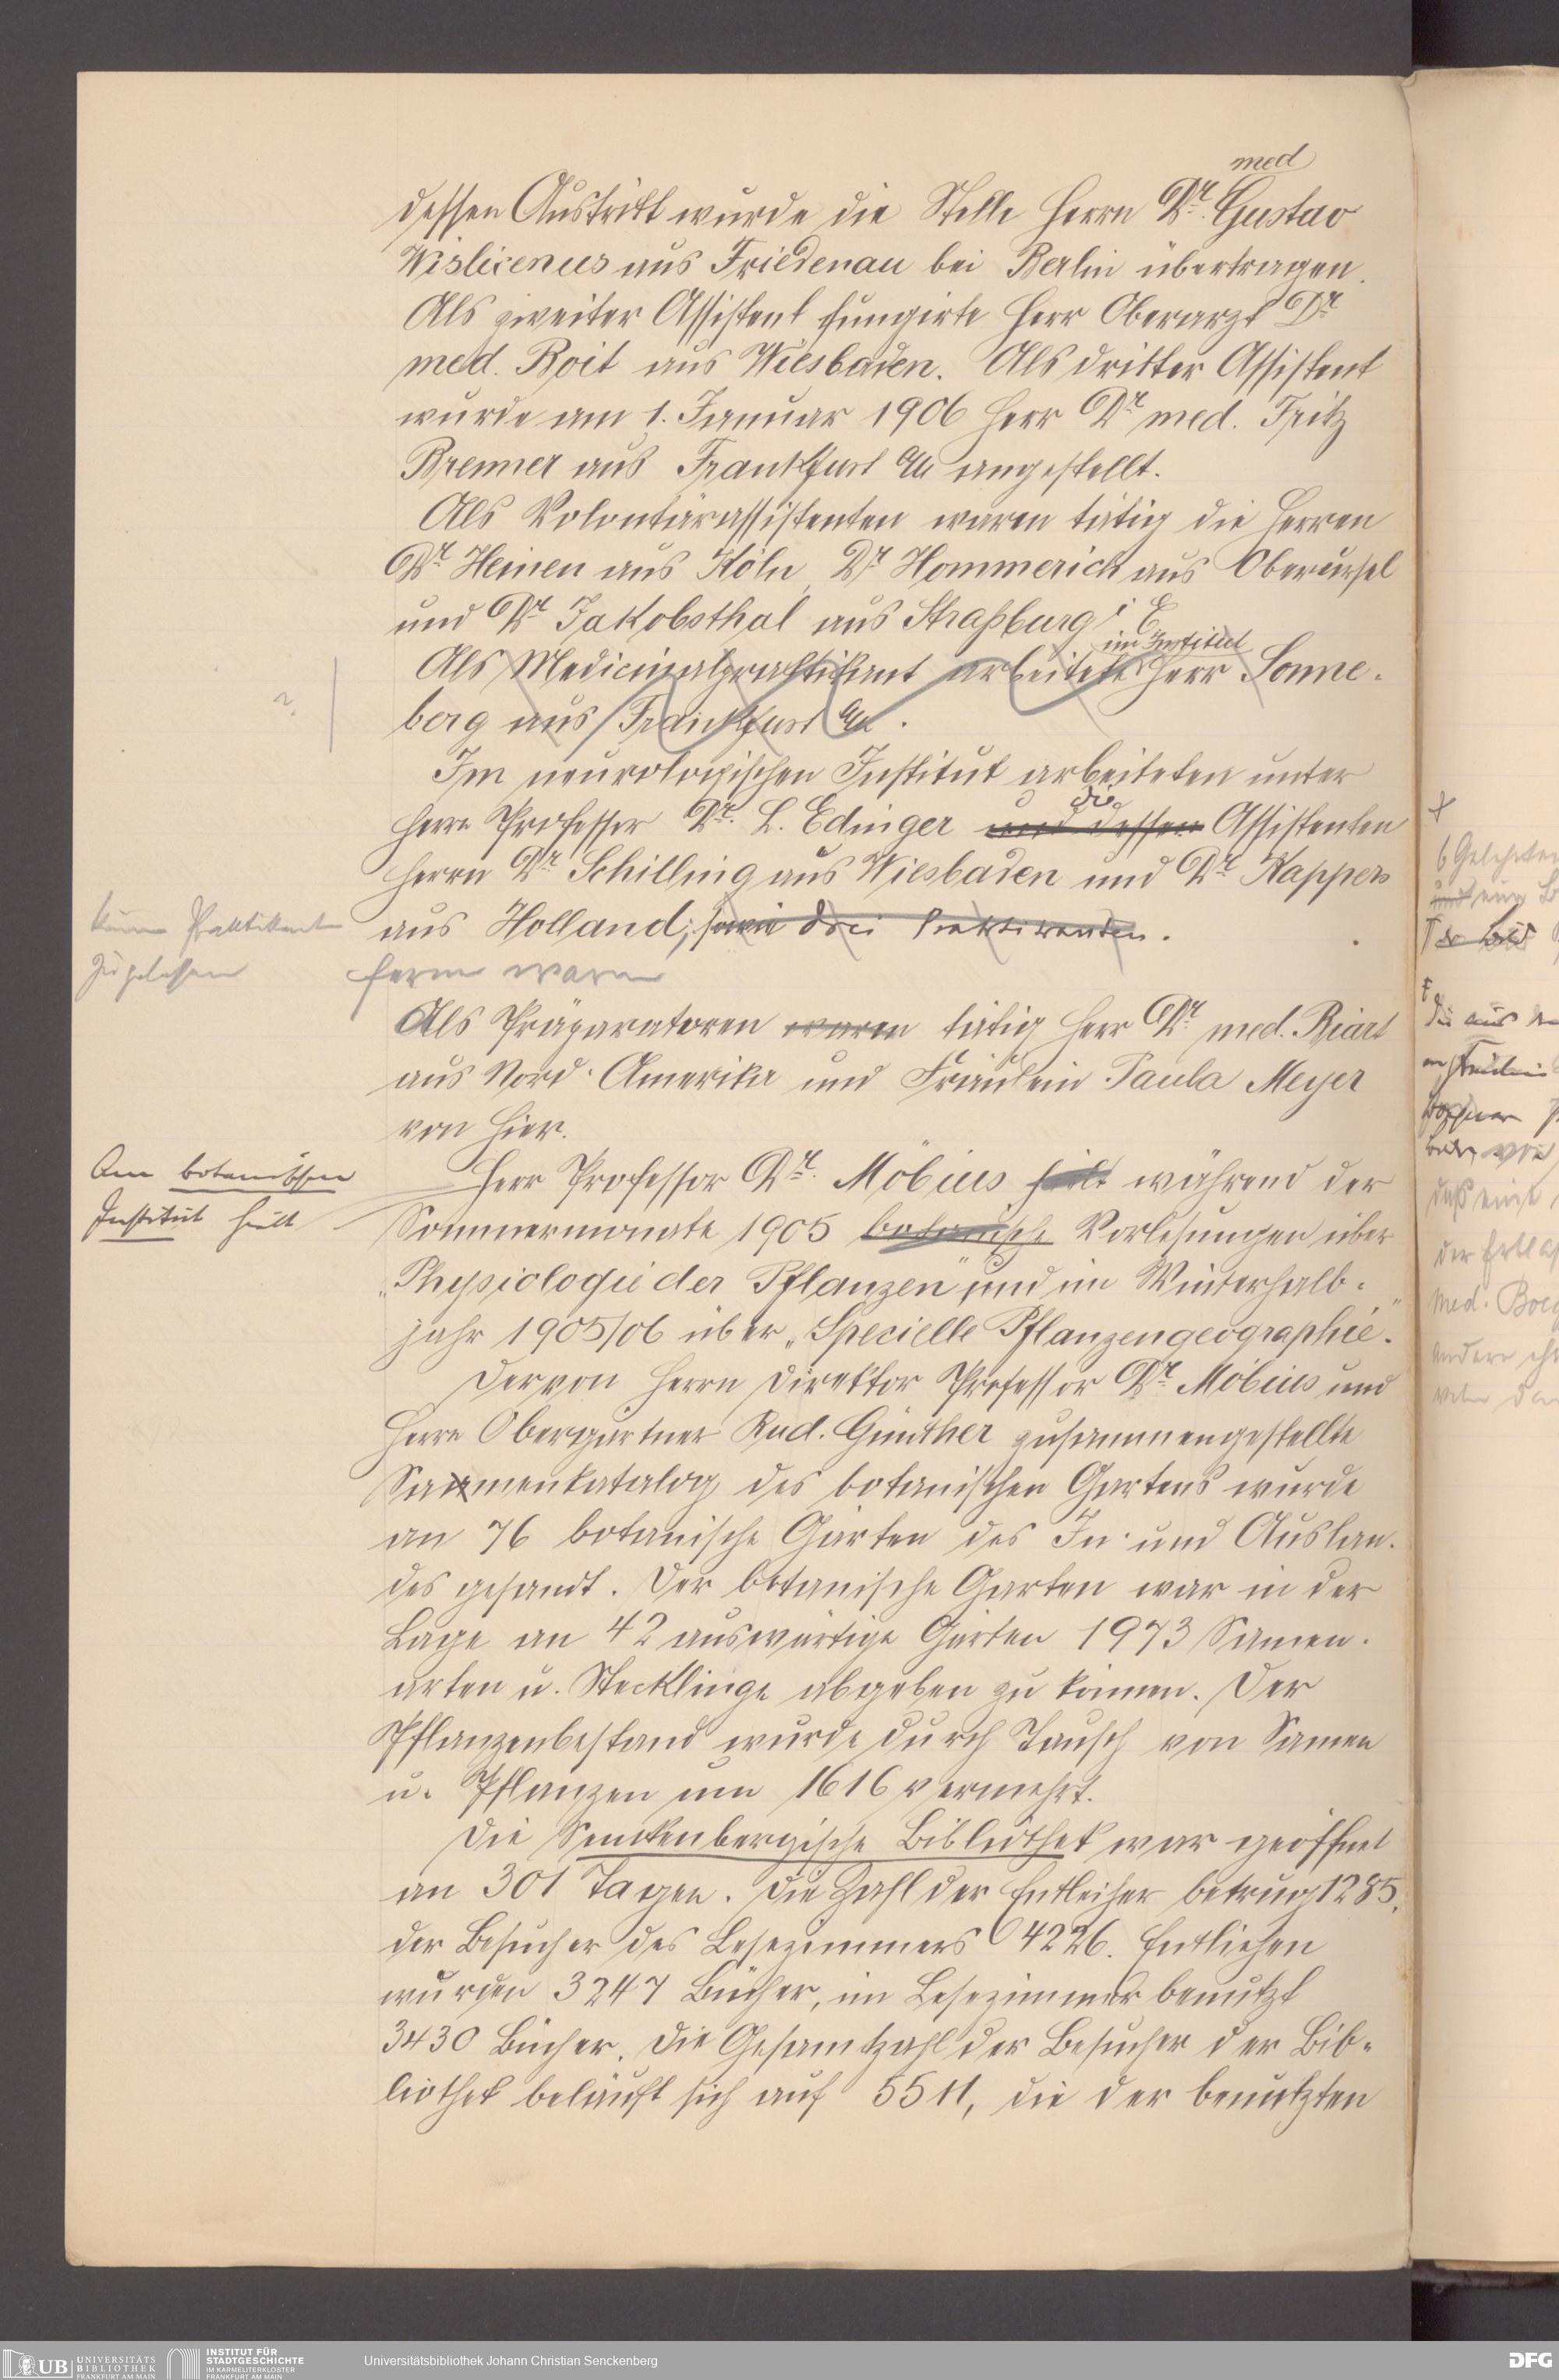 med
dessen Austritt wurde die Stelle Herrn Dr. Gustav
Wislicenus aus Friedenau bei Berlin übertragen.
Als zweiter Assistent fungirte Herr Oberarzt Dr
med. Roit aus Wiesbaden. Als dritter Assistent
wurde am 1. Januar 1906 Herr Dr med. Fritz
Brenner aus Frankfurt a/M angestellt.
Als Volontärassistenten waren tätig die Herren
Dr Heinen aus Köln, Dr Hommerich aus Oberursel
und Dr Jakobsthal aus Straßburg i E
im Institut
Als Medicinalpraktikant arbeitete Herr Sonne-
berg aus Frankfurt a/M.
Im neurologischen Institut arbeiteten unter
die
Herrn Professor Dr. L. Edinger und dessen Assistenten
Herrn Dr Schilling aus Wiesbaden und Dr Kappers
aus Holland; sowie drei Praktikanten.
Praktikant
zugelassen
ferner waren
Als Präparatoren waren tätig Herr Dr med. Riart
aus Nord-Amerika und Fräulein Paula Meyer
von hier.
Am botanischen
Institut hielt
Herr Professor Dr. Möbius hielt während der
Sommermonate 1905 botanische Vorlesungen über
„Physiologie der Pflanzen" und im Winterhalb-
jahr 1905/06 über „Specielle Pflanzengeographie".
Der von Herrn Direktor Professor Dr Möbius und
Herrn Obergärtner Rud. Günther zusammengestellte
Samenkatalog des botanischen Gartens wurde
an 76 botanische Gärten des In- und Auslan-
des gesandt. Der botanische Garten war in der
Lage an 42 auswärtige Gärten 1973 Samen-
arten u. Stecklinge abgeben zu können. Der
Pflanzenbestand wurde durch Tausch von Samen
u. Pflanzen um 1616 vermehrt.
Die Senckenbergische Bibliothek war geöffnet
an 301 Tagen. Die Zahl der Entleiher betrug 1285,
der Besucher des Lesezimmers 4226. Entliehen
wurden 3247 Bücher, im Lesezimmer benutzt
3430 Bücher. Die Gesamtzahl der Besucher der Bib-
liothek beläuft sich auf 5511, die der benutzten
UB UNIVERSITÄTS
BIBLIOTHEK
FRANKFURT AM MAIN
INSTITUT FÜR
STADTGESCHICHTE
IM KARMELITERKLOSTER
FRANKFURT AM MAIN
Universitätsbibliothek Johann Christian Senckenberg
DFG